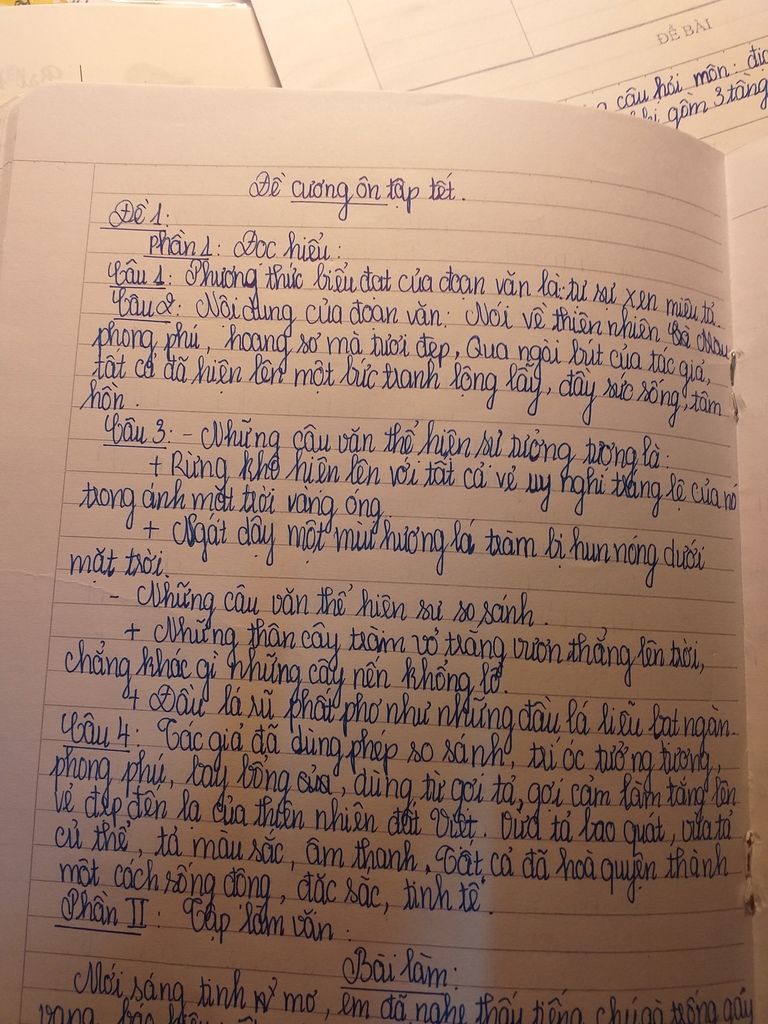 ĐỀ BÀI
câu hỏi môn: địa
gồm 3 tầng
Đề cương ôn tập tết.
Đề 1:
Phần 1: Đọc hiểu:
Câu 1: Phương thức biểu đạt của đoạn văn là: tự sự xen miêu tả.
Câu 2: Nội dung của đoạn văn: Nói về thiên nhiên Cà Mau
phong phú, hoang sơ mà tươi đẹp, Qua ngòi bút của tác giả,
tất cả đã hiện lên một bức tranh lộng lẫy, đầy sức sống, tâm
hồn.
Câu 3: - Những câu văn thể hiện sự tưởng tượng là:
+ Rừng khô hiện lên với tất cả vẻ uy nghi tráng lệ của nó
trong ánh mặt trời vàng óng.
+ Ngát dậy một mùi hương lá tràm bị hun nóng dưới
mặt trời.
- Những câu văn thể hiện sự so sánh.
+ Những thân cây tràm vỏ trắng vươn thẳng lên trời,
chẳng khác gì những cây nến khổng lồ.
+ Đầu lá rũ phất phơ như những đầu lá liễu bạt ngàn.
Câu 4: Tác giả đã dùng phép so sánh, trí óc tưởng tượng,
phong phú, bay bổng, dùng từ gợi tả, gợi cảm làm tăng lên
vẻ đẹp đến lạ của thiên nhiên đất Việt. Vừa tả bao quát, vừa tả
cụ thể, tả màu sắc, âm thanh. Tất cả đã hoà quyện thành
một cách sống động, đặc sắc, tinh tế.
Phần II: Tập làm văn:
Bài làm:
Mới sáng tinh mơ, em đã nghe thấy tiếng chú gà trống gáy
vang, báo hiệu